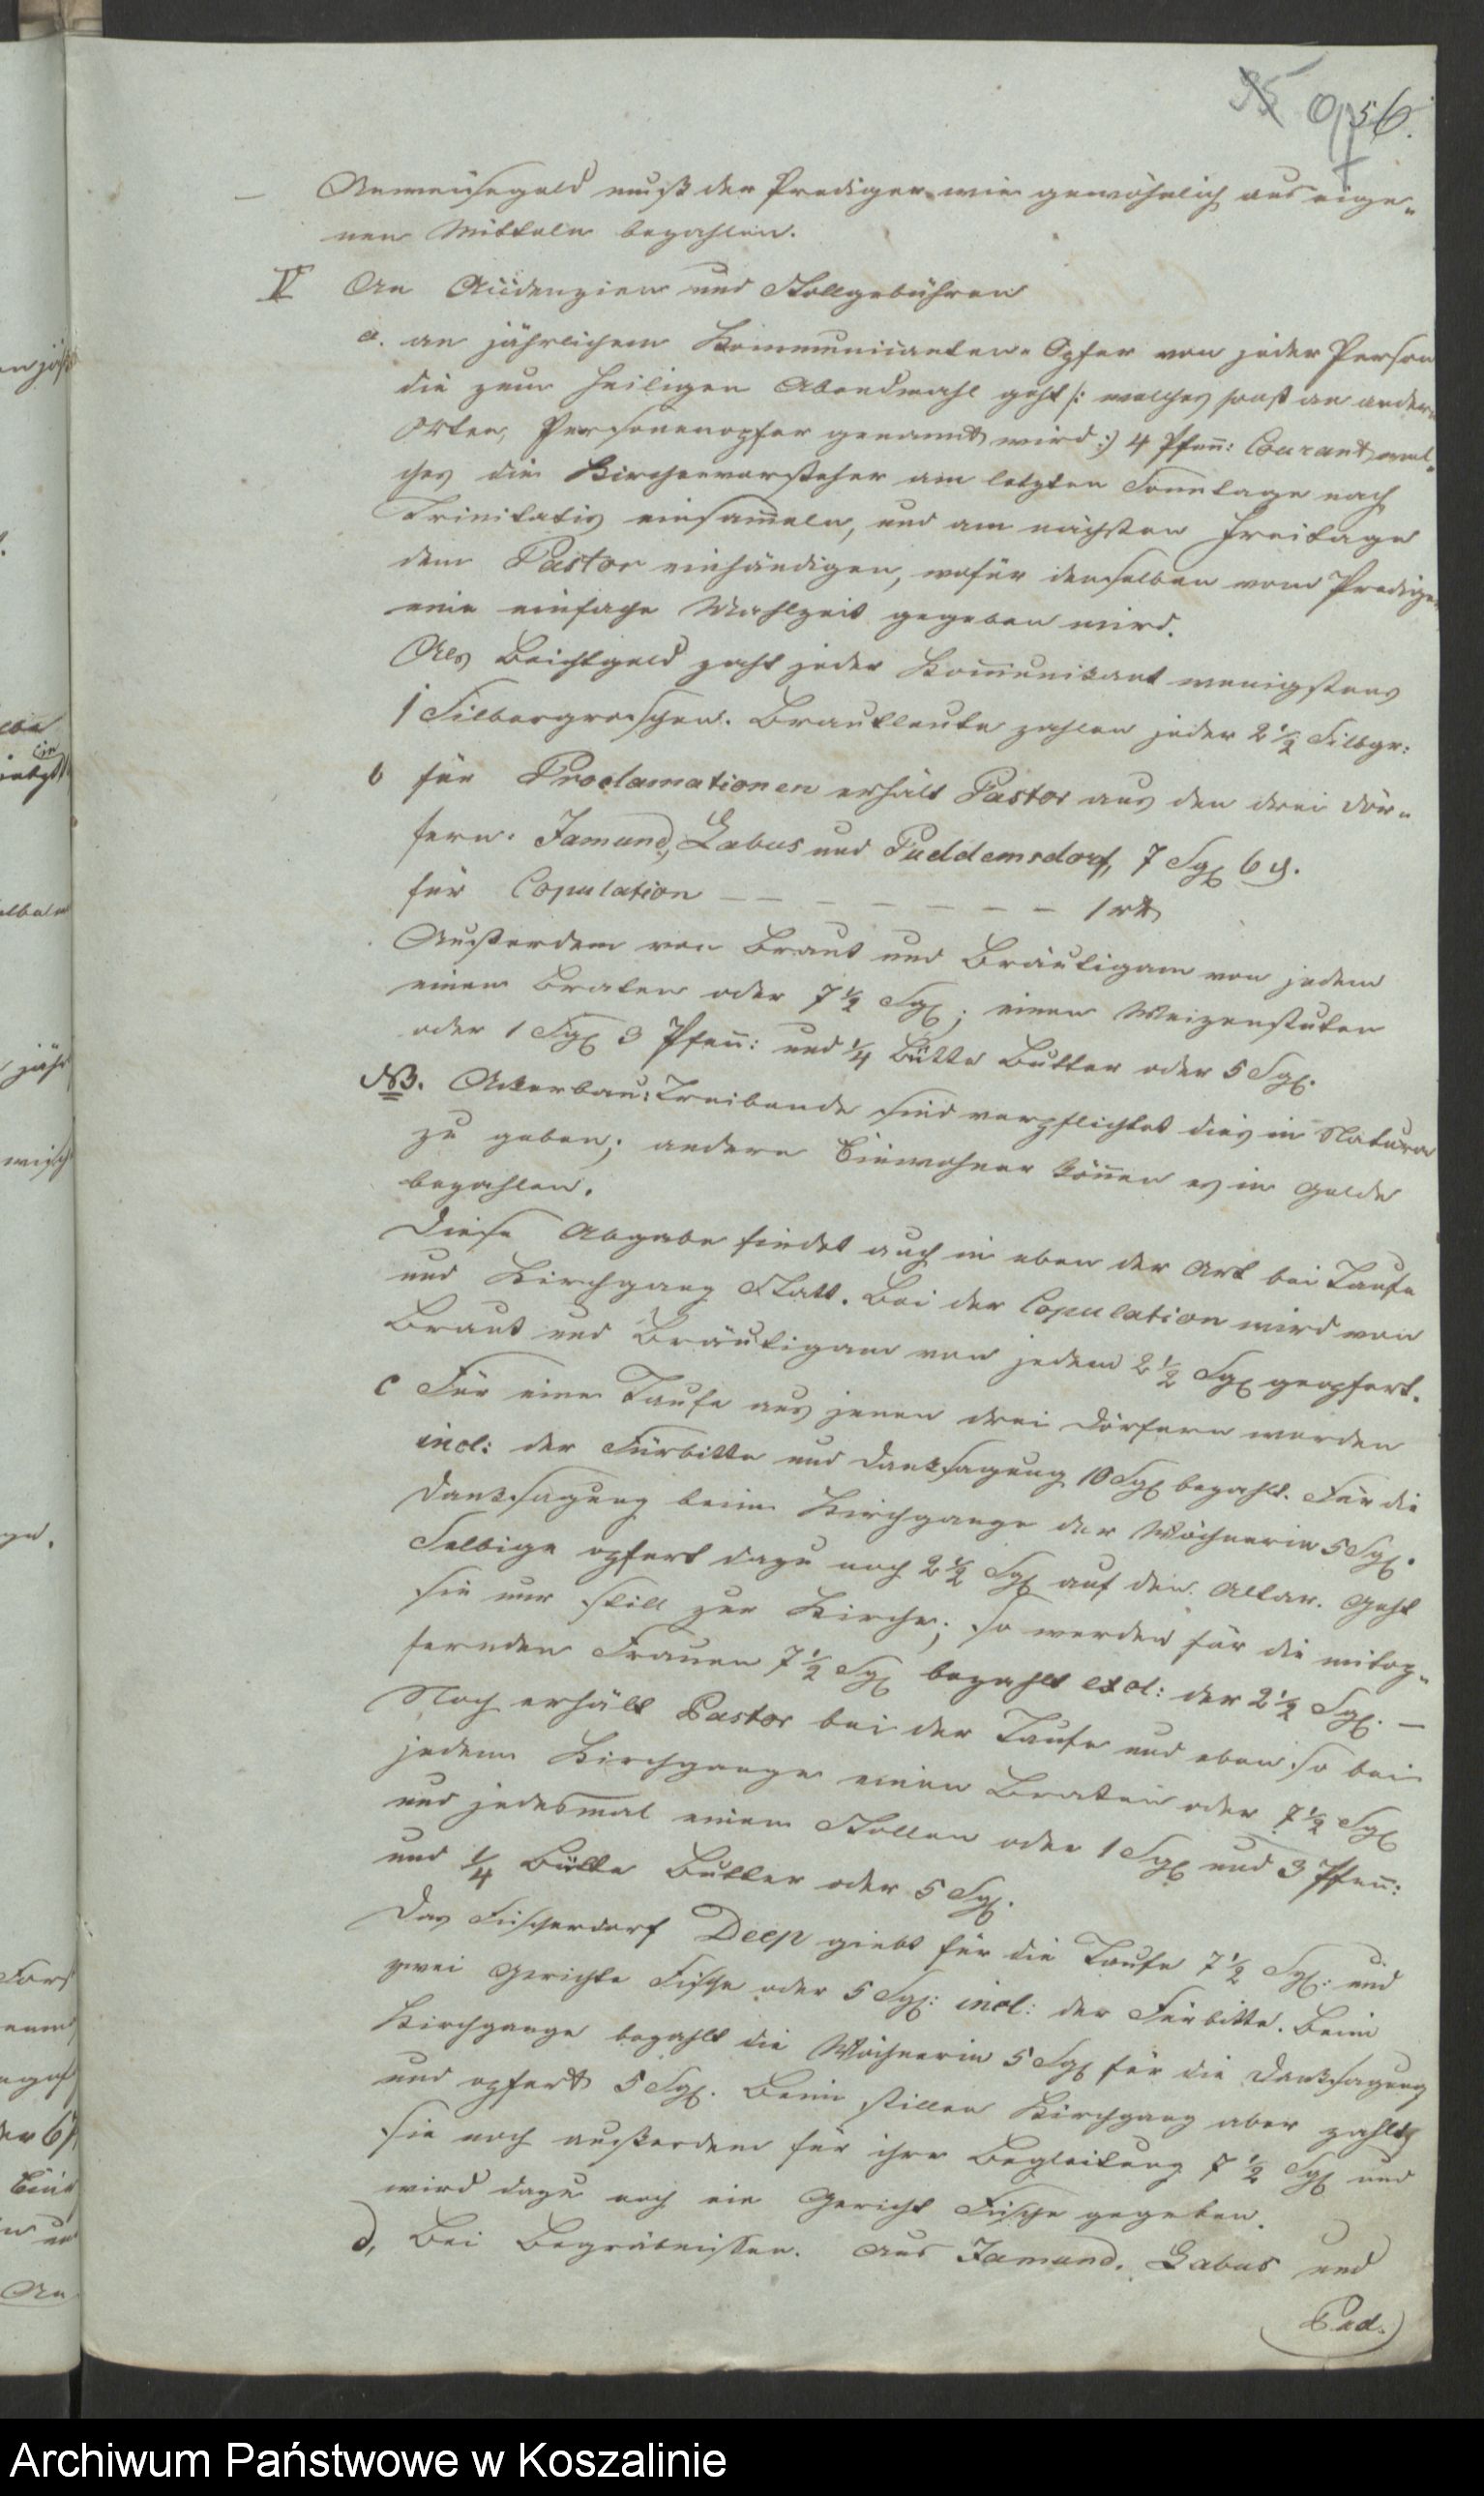 56.
Anweisegeld muß der Prediger wie gewöhnlich aus eige„
nen Mitteln bezahlen.
V An Accidenzien und Stollgebühren
a. an jährlichem Kommunicanten-Opfer von jeder Person
die zum heiligen Abendmahl geht /: welches sonst an andern
Orten, Personenopfer genannt wird :/ 4 Pfen̄: Courant, wel„
ches die Kirchenvorsteher am letzten Sonntage nach
Trinitatis einsam̄eln, und am nächsten Freitage
dem Pastor einhändigen, wofür denselben vom Prediger
eine einfache Mahlzeit gegeben wird.
Als Beichtgeld zahlt jeder Kom̄unikant wenigstens
1 Silbergroschen. Brautleute zahlen jeder 2½ Silbgr:
b für Proclamationen erhält Pastor aus den drei Dör„
fern: Jamund, Labus und Puddemsdorf, 7 Sgr 6 d.
für Copulation — — — — — — — 1 rt
Außerdem von Braut und Bräutigam von jedem
einen Braten oder 7½ Sgr; einen Weizenstuten
oder 1 Sgr 3 Pfen̄: und ¼ Bütte Butter oder 5 Sgr.
NB. Ackerbau-Treibende sind verpflichtet dies in Natura
zu geben; andere Einwohner kön̄en es in Gelde
bezahlen.
Diese Abgabe findet auch in eben der Art bei Taufe
und Kirchgang Statt. Bei der Copulation wird von
Braut und Bräutigam von jedem 2½ Sgr geopfert.
c Für eine Taufe aus jenen drei Dörfern werden
incl: der Fürbitte und Danksagung 10 Sgr bezahlt. Für die
Danksagung beim Kirchgange der Wöchnerin 5 Sgr.
Selbige opfert dazu noch 2½ Sgr auf den Altar. Geht
sie nur still zur Kirche; so werden für die mitop„
fernden Frauen 7½ Sgr bezahlt excl: der 2½ Sgr. —
Noch erhält Pastor bei der Taufe und eben so bei
jedem Kirchgange einen Braten oder 7½ Sgr
und jedesmal einen Stollen oder 1 Sgr und 3 Pfen̄:
und ¼ Bütte Butter oder 5 Sgr.
Das Fischerdorf Deep giebt für die Taufe 7½ Sgr: und
zwei Gerichte Fische oder 5 Sgr: incl: der Fürbitte. Beim
Kirchgange bezahlt die Wöchnerin 5 Sgr für die Danksagung
und opfert 5 Sgr. Beim stillen Kirchgang aber zahlt
sie noch außerdem für ihre Begleitung 7½ Sgr und
wird dazu noch ein Gericht Fische gegeben.
d, Bei Begräbnissen. Aus Jamund, Labus und
Pud.
Archiwum Państwowe w Koszalinie